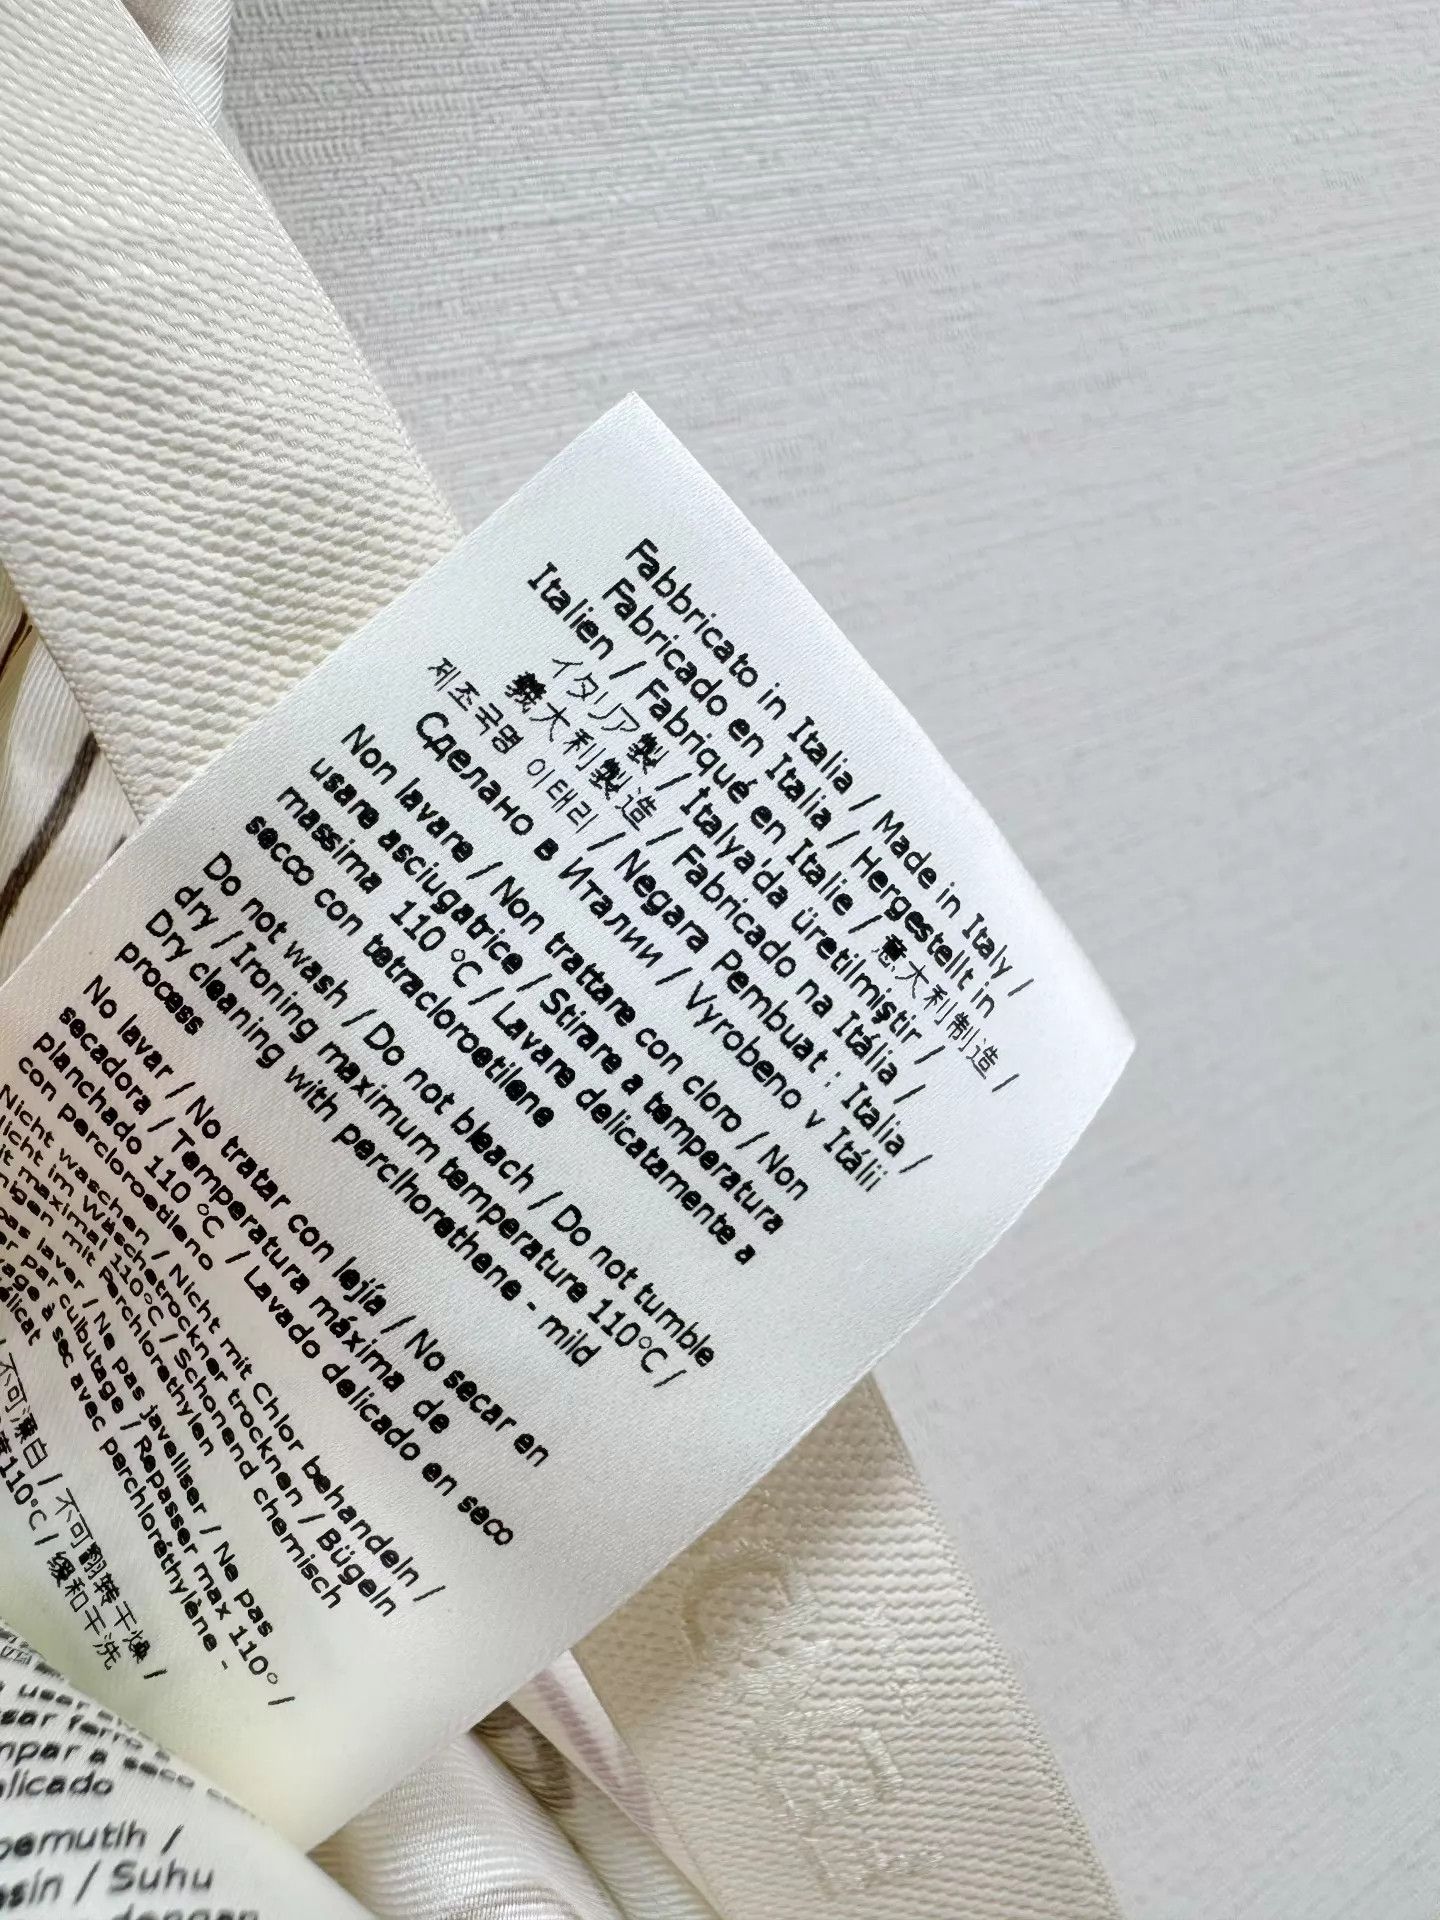 Fabbricato in Italia / Made in Italy /
Fabricado en Italia / Hergestellt in
Italien / Fabriqué en Italie / 意大利制造 /
イタリア製 / Italya'da üretilmiştir /
義大利製造 / Fabricado na Itália /
제조국명 이태리 / Negara Pembuat : Italia /
Сделано в Италии / Vyrobeno v Itálii
Non lavare / Non trattare con cloro / Non
usare asciugatrice / Stirare a temperatura
massima 110 °C / Lavare delicatamente a
secco con tetracloroetilene
Do not wash / Do not bleach / Do not tumble
dry / Ironing maximum temperature 110°C /
Dry cleaning with perclhorethene - mild
process
No lavar / No tratar con lejía / No secar en
secadora / Temperatura máxima de
planchado 110 °C / Lavado delicado en seco
con percloroetileno
Nicht waschen / Nicht mit Chlor behandeln /
Nicht im Wäschetrockner trocknen / Bügeln
mit maximal 110°C / Schonend chemisch
mit Perchlorethylen
laver / Ne pas javelliser / Ne pas
par culbutage / Repasser max 110° /
à sec avec perchloréthylène -
délicat
/ 不可漂白 / 不可翻转干燥 /
110°C / 缓和干洗
usar
ferro
a seco
delicado
pemutih /
/ Suhu
dengan